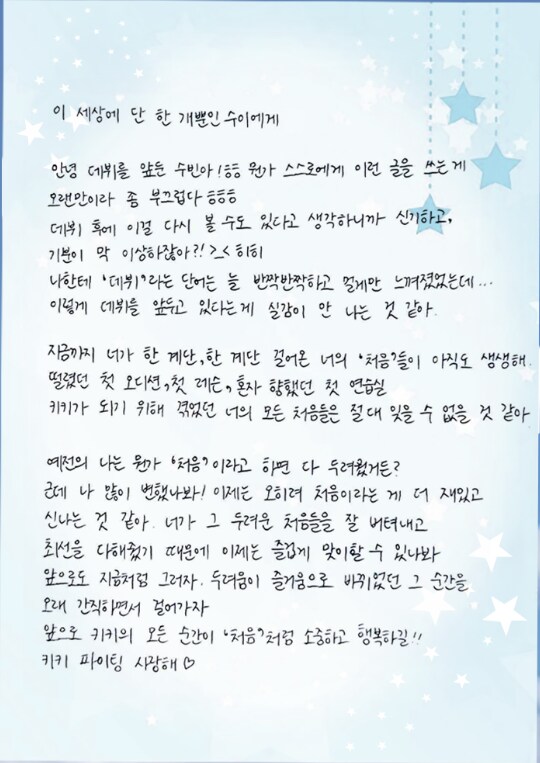 이 세상에 단 한 개뿐인 수이에게
안녕 데뷔를 앞둔 수빈아! ㅎㅎ 뭔가 스스로에게 이런 글을 쓰는게
오랜만이라 좀 부끄럽다 ㅎㅎㅎ
데뷔 후에 이걸 다시 볼 수도 있다고 생각하니까 신기하고,
기분이 막 이상하잖아?! >_< 히히
나한테 '데뷔'라는 단어는 늘 반짝반짝하고 멀게만 느껴졌었는데...
이렇게 데뷔를 앞두고 있다는게 실감이 안 나는 것 같아.
지금까지 너가 한 계단, 한 계단 걸어온 너의 '처음'들이 아직도 생생해.
떨렸던 첫 오디션, 첫 레슨, 혼자 향했던 첫 연습실
키키가 되기 위해 겪었던 너의 모든 처음들은 절대 잊을 수 없을 것 같아
예전의 나는 뭔가 '처음'이라고 하면 다 두려웠거든?
근데 나 많이 변했나봐! 이제는 오히려 처음이라는 게 더 재밌고
신나는 것 같아. 너가 그 두려운 처음들을 잘 버텨내고
최선을 다해줬기 때문에 이제는 즐겁게 맞이할 수 있나봐
앞으로도 지금처럼 그러자. 두려움이 즐거움으로 바뀌었던 그 순간을
오래 간직하면서 걸어가자
앞으로 키키의 모든 순간이 '처음'처럼 소중하고 행복하길!!
키키 파이팅 사랑해 ♡